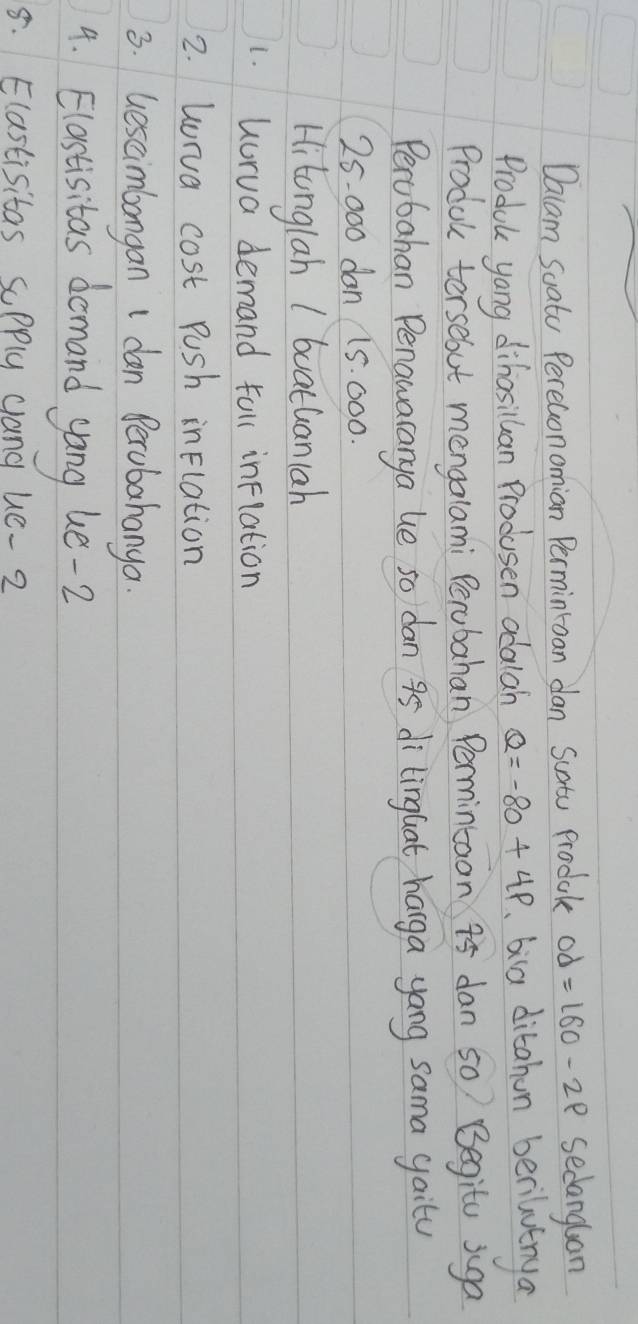 Dalam suatu Perekonomian Permintaan dan suatu Produk Qd = 160 - 2P sedangkan
Produk yang dihasilkan Produsen adalah Q = -80 + 4P, bila ditahun berikutnya
Produk tersebut mengalami Perubahan Permintaan 75 dan 50 Begitu juga
Perubahan Penawaranya ke 50 dan 75 di tingkat harga yang sama yaitu
25.000 dan 15.000.
Hitunglah / buatkanlah
1. kurva demand full inflation
2. kurva cost Push inflation
3. keseimbangan 1 dan Perubahanya.
4. Elastisitas demand yang ke-2
5. Elastisitas supply yang ke-2